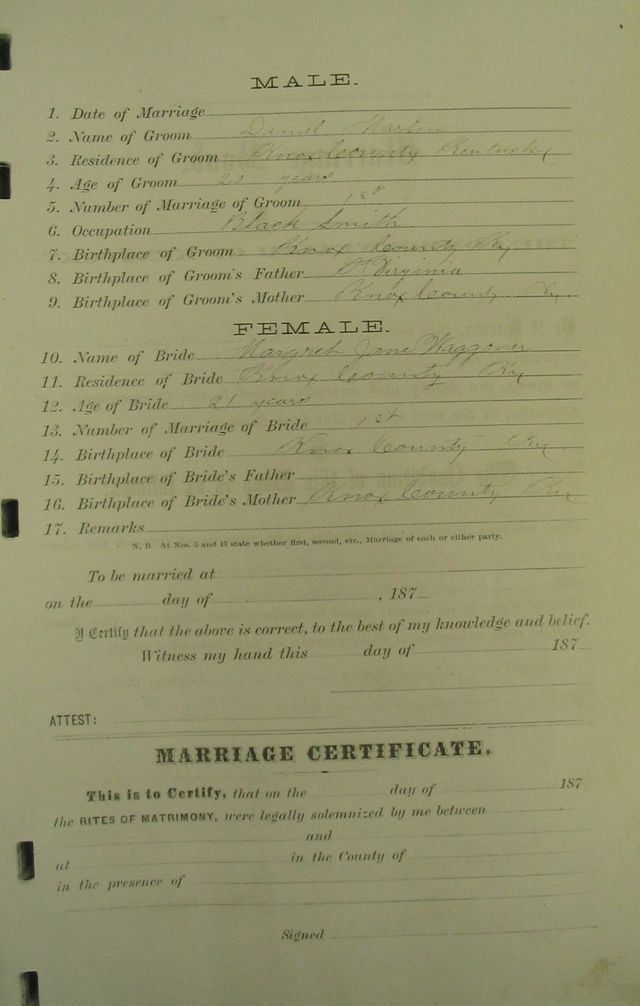 MALE.
1. Date of Marriage
2. Name of Groom Daniel Martin
3. Residence of Groom Knox County Kentucky
4. Age of Groom 21 years
5. Number of Marriage of Groom 1st
6. Occupation Black Smith
7. Birthplace of Groom Knox County Ky
8. Birthplace of Groom's Father Virginia
9. Birthplace of Groom's Mother Knox County Ky.
FEMALE.
10. Name of Bride Margret Jane Waggoner
11. Residence of Bride Knox County Ky
12. Age of Bride 21 years
13. Number of Marriage of Bride 1st
14. Birthplace of Bride Knox County Ky
15. Birthplace of Bride's Father
16. Birthplace of Bride's Mother Knox County Ky
17. Remarks
N. B. At Nos. 5 and 13 state whether first, second, etc., Marriage of each or either party.
To be married at
on the day of , 187
I Certify that the above is correct, to the best of my knowledge and belief.
Witness my hand this day of 187
ATTEST:
MARRIAGE CERTIFICATE.
This is to Certify, that on the day of 187
the RITES OF MATRIMONY, were legally solemnized by me between
and
at in the County of
in the presence of
Signed